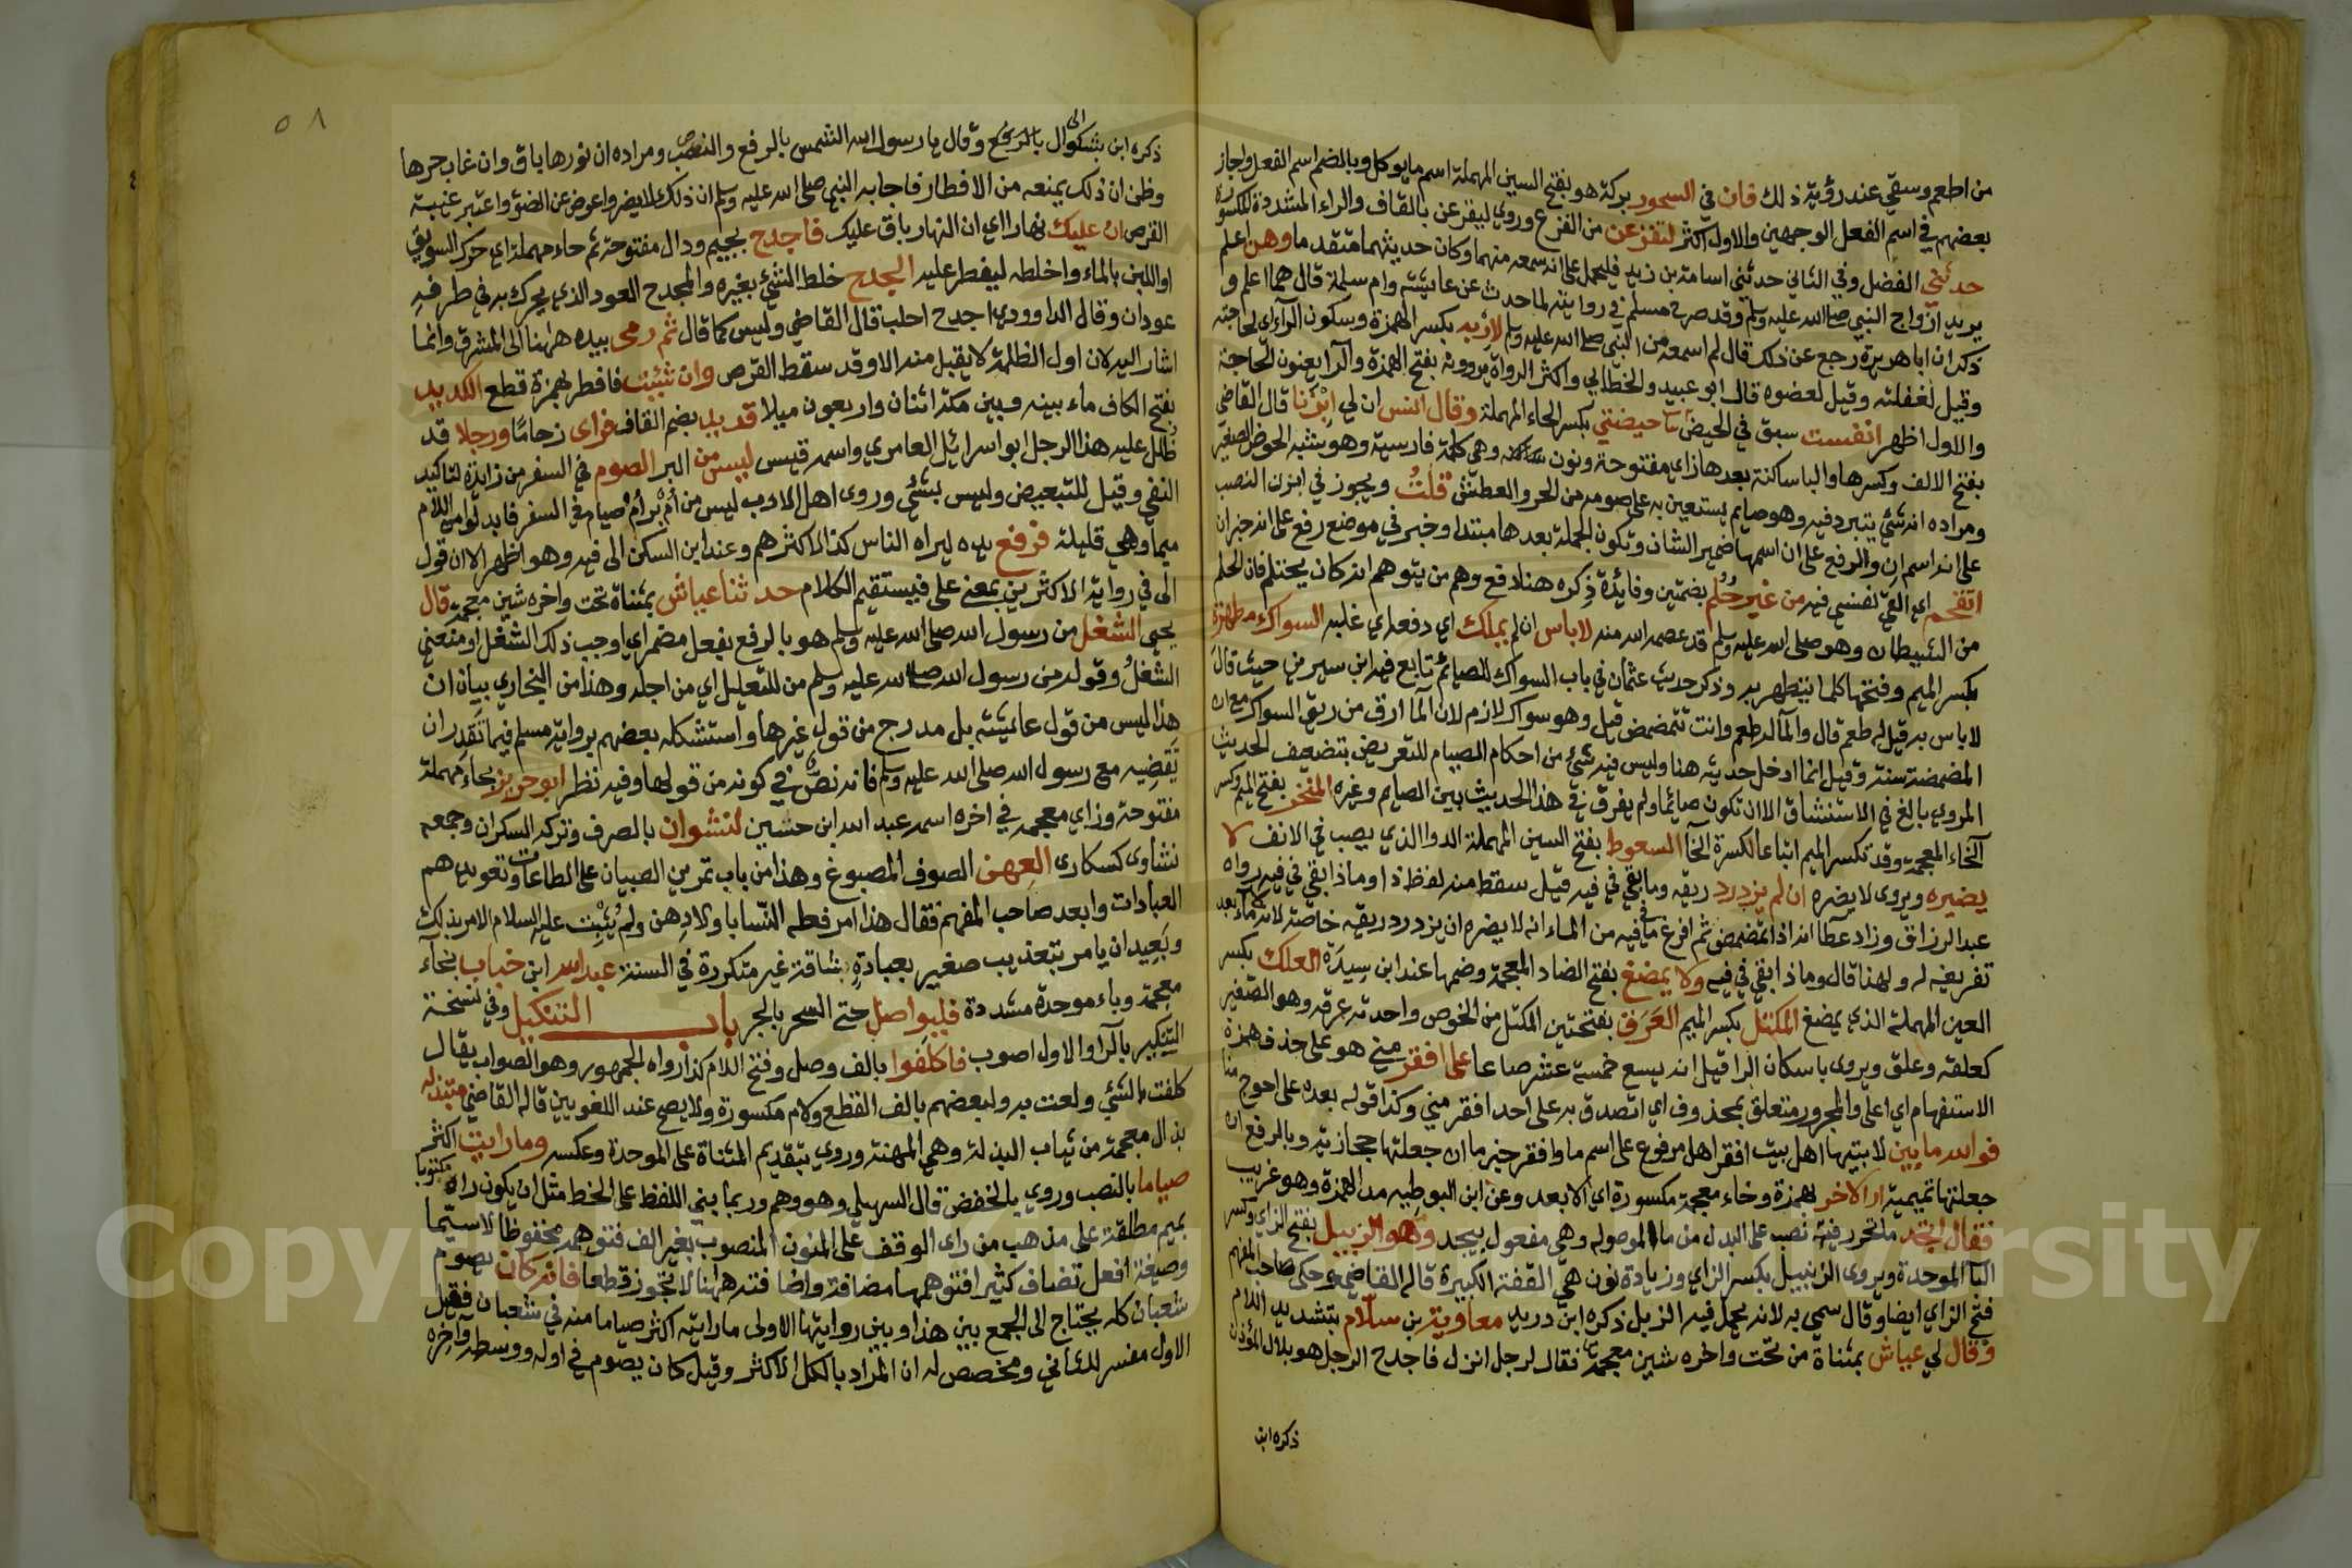 من اطعم وسقي عند رؤية ذلك فان في السحور بركة هو بفتح السين المهملة اسم ما يوكل وبالضم اسم الفعل واجاز
بعضهم في اسم الفعل الوجهين والاول اكثر لتفزعن من الفزع وروي ليفزعن بالقاف والراء المشددة المكسورة
حدثني الفضل وفي الثاني حدثني اسامة بن زيد فليحمل على انه سمعه منهما وكان حديثهما متقدما وهن اعلم
يريد ازواج النبي صلى الله عليه وسلم وقد صرح مسلم في روايته لما حدث عن عايشة وام سلمة قال هما اعلم و
ذكر ان ابا هريرة رجع عن ذلك قال لم اسمعه من النبي صلى الله عليه وسلم لاربه بكسر الهمزة وسكون الراء اي لحاجته
وقيل لغفلته وقيل لعضوه قال ابو عبيد والخطابي واكثر الرواة يروونه بفتح الهمزة والرا يعنون الحاجة
والاول اظهر انفست سبق في الحيض حيضتي بكسر الحاء المهملة وقال انس ان لي ابزنا قال القاضي
بفتح الالف وكسرها والبا ساكنة بعدها زاي مفتوحة ونون وهي كلمة فارسية وهو شبه الحوض الصغير
ومراده انه شئ يتبرد فيه وهو صايم يستعين به على صومه من الحر والعطش قلت ويجوز في ابزن النصب
على انه اسم ان والرفع على ان اسمها ضمير الشان وتكون الجملة بعدها مبتدا وخبر في موضع رفع على انه خبر ان
اتقحم اي القي نفسي فيه من غير حلم بضمتين وفائدة ذكره هنا دفع وهم من يتوهم انه كان يحتلم فان الحلم
من الشيطان وهو صلى الله عليه وسلم قد عصمه الله منه لا باس ان لم يملك اي دفعه اي غلبه السواك مطهرة
بكسر الميم وفتحها كلما يتطهر به وذكر حديث عثمان في باب السواك للصائم تابع فيه ابن سيرين حيث قال
لا باس به قيل له طعم قال والماء له طعم وانت تتمضمض قيل وهو سواك لازم لان الماء ارق من ريق السواك مع ان
المضمضة سنة وقيل انما ادخل حديثه هنا وليس فيه شئ من احكام الصيام للتعريض بتضعيف الحديث
المروي بالغ في الاستنشاق الا ان تكون صائما ولم يفرق في هذا الحديث بين الصايم وغيره المنخر بفتح الميم وكسر
الخاء المعجمة وقد تكسر الميم اتباعا لكسرة الخا السعوط بفتح السين المهملة الدوا الذي يصب في الانف لا
يضيره ويروى لا يضره ان لم يزدرد ريقه وما بقي في فيه قيل سقط منه لفظ ذا وماذا بقي في فيه رواه
عبد الرزاق وزاد عطا انه اذا تمضمض ثم افرغ ما في فيه من الماء انه لا يضره ان يزدرد ريقه خاصة لانه لا ماء بعد
تفريغه له ولهذا قال وماذا بقي في فيه ولا يمضغ بفتح الضاد المعجمة وضمها عند ابن سيده العلك بكسر
العين المهملة الذي يمضغ المكتل بكسر الميم العرق بفتحتين المكتل من الخوص واحدته عرقه وهو الصغير
كعلقه وعلق ويروى باسكان الرا قيل انه يسع خمسة عشر صاعا على افقر مني هو على حذف همزة
الاستفهام اي اعلى والمجرور متعلق بمحذوف اي اتصدق به على احد افقر مني وكذا قوله بعده على احوج منا
فوالله ما بين لابتيها اهل بيت افقر اهل مرفوع على اسم ما وافقر خبر ما ان جعلتها حجازيه وبالرفع ان
جعلتها تميمية ان الاخر بهمزة وخاء معجمة مكسورة اي الابعد وعن ابن القوطيه مد الهمزة وهو غريب
فقال اتجد ما تحرر رقبة نصب على البدل من ما الموصوله وهي مفعول بيجد وهو الزبيل بفتح الزاي وكسر
البا الموحدة ويروى الزنبيل بكسر الزاي وزيادة نون هي القفة الكبيرة قاله القاضي وحكى صاحب المفهم
فتح الزاي ايضا وقال سمي به لانه يحمل فيه الزبل ذكره ابن دريد معاوية بن سلام بتشديد اللام
وقال لي عياش بمثناة من تحت واخره شين معجمة فقال لرجل انزل فاجدح الرجل هو بلال المؤذن
ذكره ابن
٥٨
ذكره ابن بشكوال وقال يا رسول الله الشمس بالرفع والنصب ومراده ان نورها باق وان غاب جرمها
وظن ان ذلك يمنعه من الافطار فاجابه النبي صلى الله عليه وسلم ان ذلك لا يضر واعرض عن الضوء واعتبر غيبة
القرص ان عليك نهارا اي ان النهار باق عليك فاجدح بجيم ودال مفتوحة ثم حاء مهملة اي حرك السويق
او اللبن بالماء واخلطه ليفطر عليه الجدح خلط الشئ بغيره والمجدح العود الذي يحرك به في طرفيه
عودان وقال الداوودي اجدح احلب قال القاضي وليس كما قال ثم رمى بيده ههنا الى المشرق وانما
اشار اليه لان اول الظلمة لا يقبل منه الا وقد سقط القرص وان شئت فافطر بهمزة قطع الكديد
بفتح الكاف ماء بينه وبين مكة اثنان واربعون ميلا قديد بضم القاف فراى زحاما ورجلا قد
ظلل عليه هذا الرجل ابو اسرائيل العامري واسمه قيس ليس من البر الصوم في السفر من زايدة لتاكيد
النفي وقيل للتبعيض وليس بشئ وروى اهل الادب ليس من ام بر ام صيام في السفر فابدلوا من اللام
ميما وهي قليلة فرفع يده ليراه الناس كذا لاكثرهم وعند ابن السكن الى فيه وهو اظهر الا ان قول
الى في رواية الاكثرين بمعنى على فيستقيم الكلام حدثنا عياش بمثناة تحت واخره شين معجمة قال
يحيى الشغل من رسول الله صلى الله عليه وسلم هو بالرفع بفعل مضمر اي اوجب ذلك الشغل او منعني
الشغل وقوله من رسول الله صلى الله عليه وسلم من للتعليل اي من اجله وهذا من البخاري بيان ان
هذا ليس من قول عائشة بل مدرج من قول غيرها واستشكله بعضهم برواية مسلم فيما تقدر ان
تقضيه مع رسول الله صلى الله عليه وسلم فانه نص في كونه من قولها وفيه نظر ابو حريز بحاء مهملة
مفتوحة وزاي معجمة في اخره اسمه عبد الله ابن حسين لنشوان بالصرف وتركه السكران وجمعه
نشاوى كسكارى العهن الصوف المصبوغ وهذا من باب تمرين الصبيان على الطاعات وتعويدهم
العبادات وابعد صاحب المفهم فقال هذا امر فعله النسا باولادهن ولم يثبت عليه السلام الامر بذلك
وبعيد ان يامر بتعذيب صغير بعبادة شاقة غير متكررة في السنة عبد الله ابن خباب بخاء
معجمة وباء موحدة مشددة فليواصل حتى السحر بالجر باب التنكيل وفي نسخة
التنكير بالرا والاول اصوب فاكلفوا بالف وصل وفتح اللام كذا رواه الجمهور وهو الصواب يقال
كلفت بالشئ ولعت به ولبعضهم بالف القطع ولام مكسورة ولا يصح عند اللغويين قاله القاضي متبذله
بذال معجمة من ثياب البذلة وهي المهنة وروي بتقديم المثناة على الموحدة وعكسه وما رايت اكثر
صياما بالنصب وروي بالخفض قال السهيلي وهو وهم وربما بني اللفظ على الخط مثل ان يكون راه مكتوبا
بميم مطلقة على مذهب من راى الوقف على المنون المنصوب بغير الف فتوهمه مخفوظا لا سيما
وصيغة افعل تضاف كثيرا فتوهمها مضافة واضافته ههنا لا تجوز قطعا فانه كان يصوم
شعبان كله يحتاج الى الجمع بين هذا وبين روايتها الاولى ما رايته اكثر صياما منه في شعبان فقيل
الاول مفسر للثاني ومخصص له ان المراد بالكل الاكثر وقيل كان يصوم في اوله ووسطه واخره